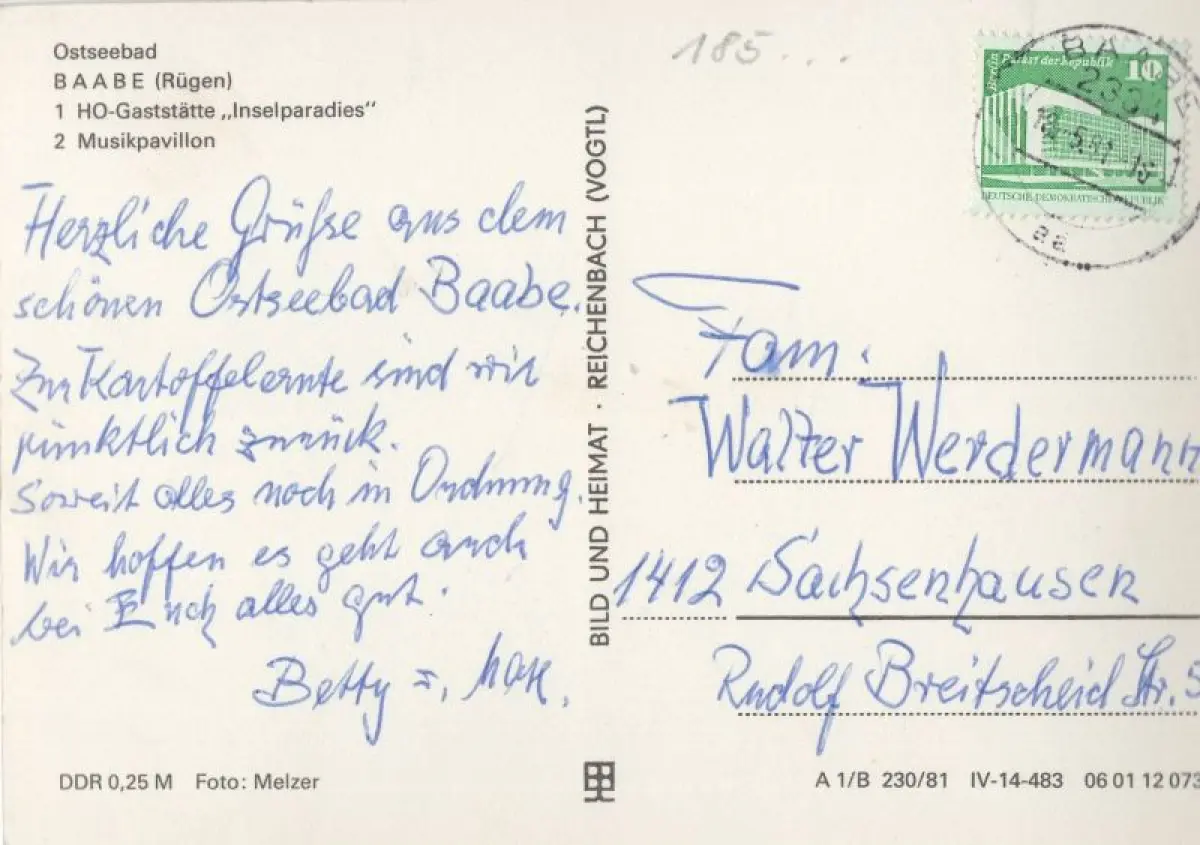 Ostseebad
BAABE (Rügen)
1 HO-Gaststätte „Inselparadies"
2 Musikpavillon
Herzliche Grüße aus dem
schönen Ostseebad Baabe.
Zur Kartoffelernte sind wir
pünktlich zurück.
Soweit alles noch in Ordnung.
Wir hoffen es geht auch
bei Euch alles gut.
Betty
DDR 0,25 M Foto: Melzer
BILD UND HEIMAT · REICHENBACH (VOGTL)
185...
Berlin Palast der Republik 10
DEUTSCHE DEMOKRATISCHE REPUBLIK
BAABE
aa
Fam.
Walter Werdermann
1412 Sachsenhausen
Rudolf Breitscheid Str. 5
A 1/B 230/81 IV-14-483 06 01 12 073